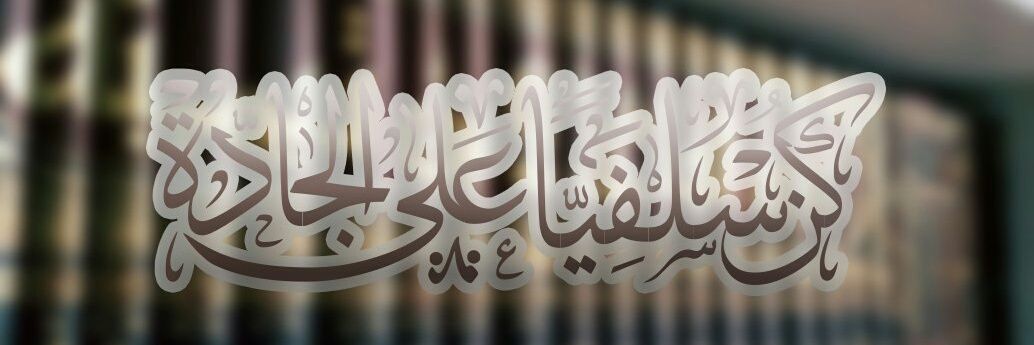 كُنْ سَلَفِيًّا عَلَى الْجَادَّةِ